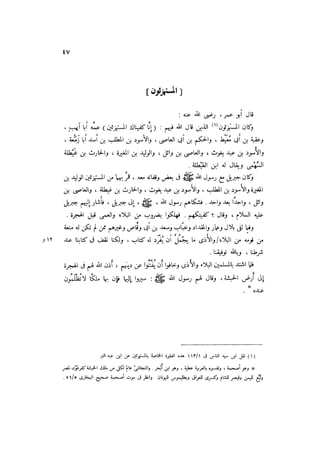 ٤٧
[ المستهزئون ]
قال أبو عمر ، رضى الله عنه :
وكان المستهزئون(١) الذين قال الله فيهم : ( إنّا كفيناك المستهزئين ) عمّه أبا لهب ،
وعقبة بن أبى معيط ، والحكم بن أبى العاصى ، والأسود بن المطلب بن أسد أبا زمعة ،
والأسود بن عبد يغوث ، والعاصى بن وائل ، والوليد بن المغيرة ، والحارث بن غيطلة
السهمى ويقال له ابن الغيطلة .
وكان جبريل مع رسول الله ﷺ فى بعض وقفاته معه ، فمرّ بهما من المستهزئين الوليد بن
المغيرة والأسود بن المطلب ، والأسود بن عبد يغوث ، والحارث بن غيطلة ، والعاصى بن
وائل ، واحدا بعد واحد . فشكاهم رسول الله ، ﷺ ، إلى جبريل ، فأشار إليهم جبريل
عليه السلام ، وقال ؟ كفيتكهم . فهلكوا بضروب من البلاء والعمى قبل الهجرة .
وفيما لقى بلال وعمار والمقداد وخبّاب وسعد بن أبى وقّاص وغيرهم ممن لم تكن له منعة
من قومه من البلاء/والأذى ما يجمُل أن يُفْرَد له كتاب ، ولكنا نقف فى كتابنا عند
١٢ و
شرطنا ، وبالله توفيقنا .
فلما اشتد بالمسلمين البلاء والأذى وخافوا أن يُفْتَنُوا عن دينهم ، أذن الله لهم فى الهجرة
إلى أرض الحبشة ، وقال لهم رسول الله ﷺ : سيروا إليها فإن بها ملكًا لا تُظْلَمُون
عنده * .
(١) نقل ابن سيد الناس فى ١١٣/١ هذه الفقرة الخاصة بالمستهزئين عن ابن عبد البر
* وهو أصحمة ، وتفسيره بالعربية عطية ، وهو ابن أبجر . والنجاشى عامّ لكل من ملك الحبشة كفرعون لمصر
وتُبَّع لليمن وقيصر للشام وكسرى للعراق وبطليموس لليونان وانظر فى موت أصحمة صحيح البخارى ٥١/٥ .